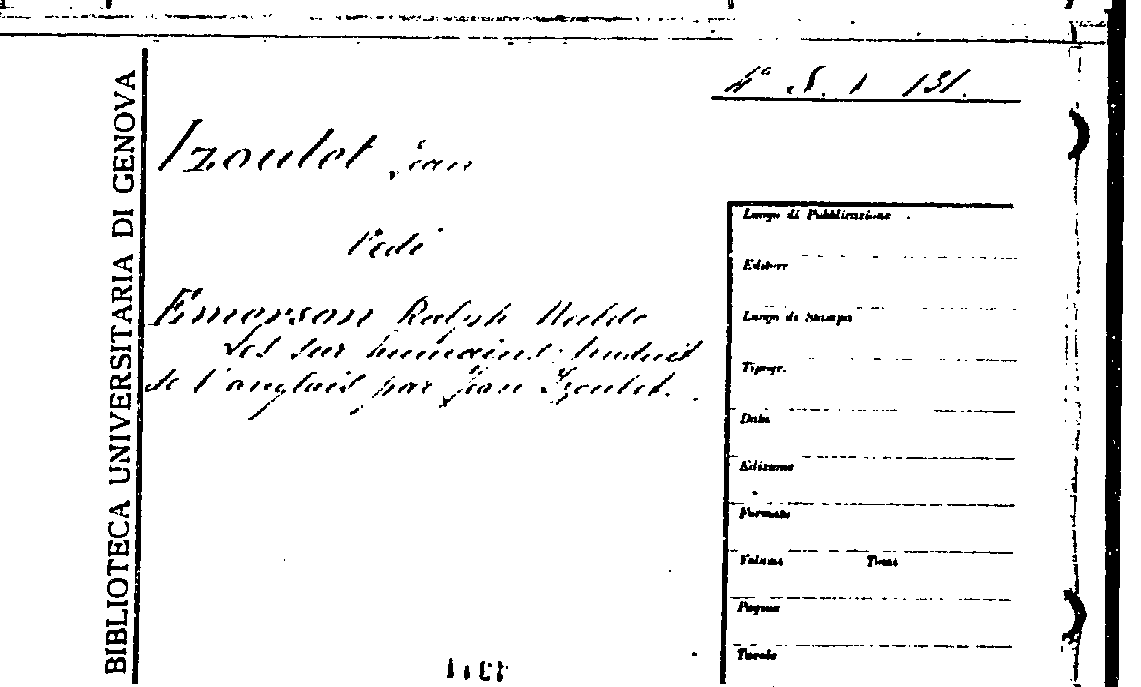 BIBLIOTECA UNIVERSITARIA DI GENOVA
Izoulet, Jean
Vedi
Emerson Ralph Waldo
Les sur humains: traduit
de l'anglais par Jean Izoulet.
Luogo di Pubblicazione
Editore
Luogo di Stampa
Tipogr.
Data
Edizione
Formato
Volume Tomi
Pagine
Tavole